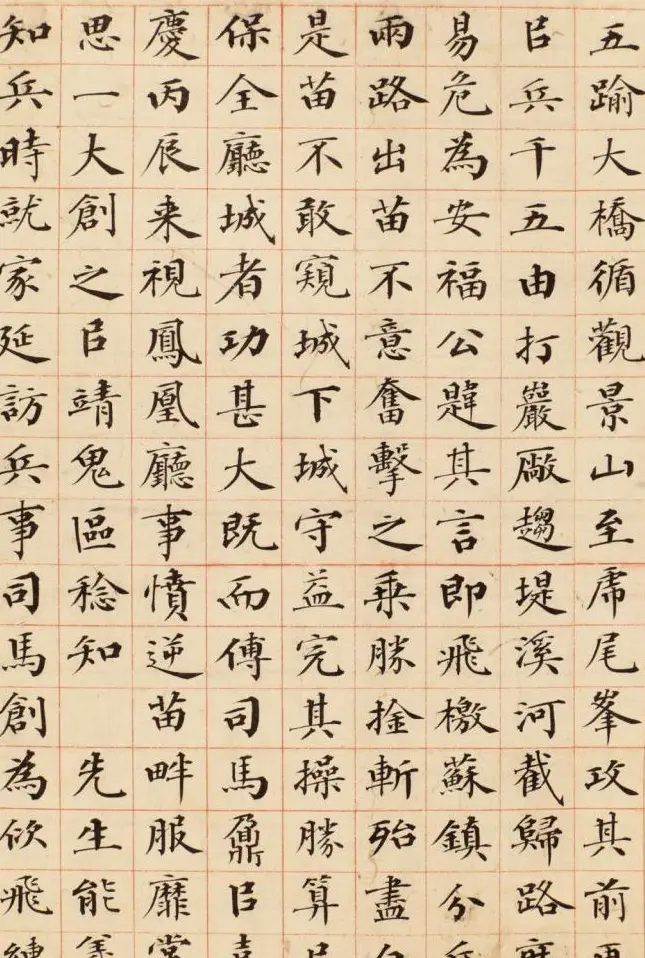 五踰大橋循觀景山至虎尾峯攻其前
㠯兵千五由打巖厰趨堤溪河截歸路
易危為安福公韙其言即飛檄蘇鎮分
兩路出苗不意奮擊之乗勝擒斬殆盡
是苗不敢窺城下城守益完其操勝算
保全廳城者功甚大既而傅司馬鼐㠯
慶丙辰来視鳳凰廳事憤逆苗畔服靡常
思一大創之㠯靖鬼區稔知 先生能
知兵時就家延訪兵事司馬創為飲飛